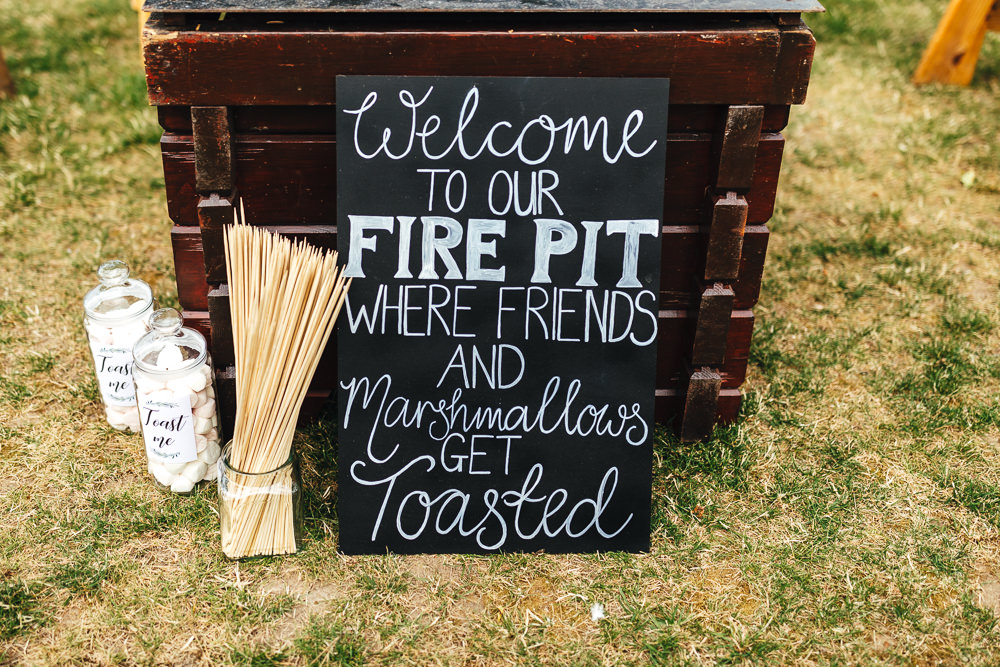 Welcome
TO OUR
FIRE PIT
WHERE FRIENDS
AND
Marshmallows
GET
Toasted
Toast
me
Toast
me